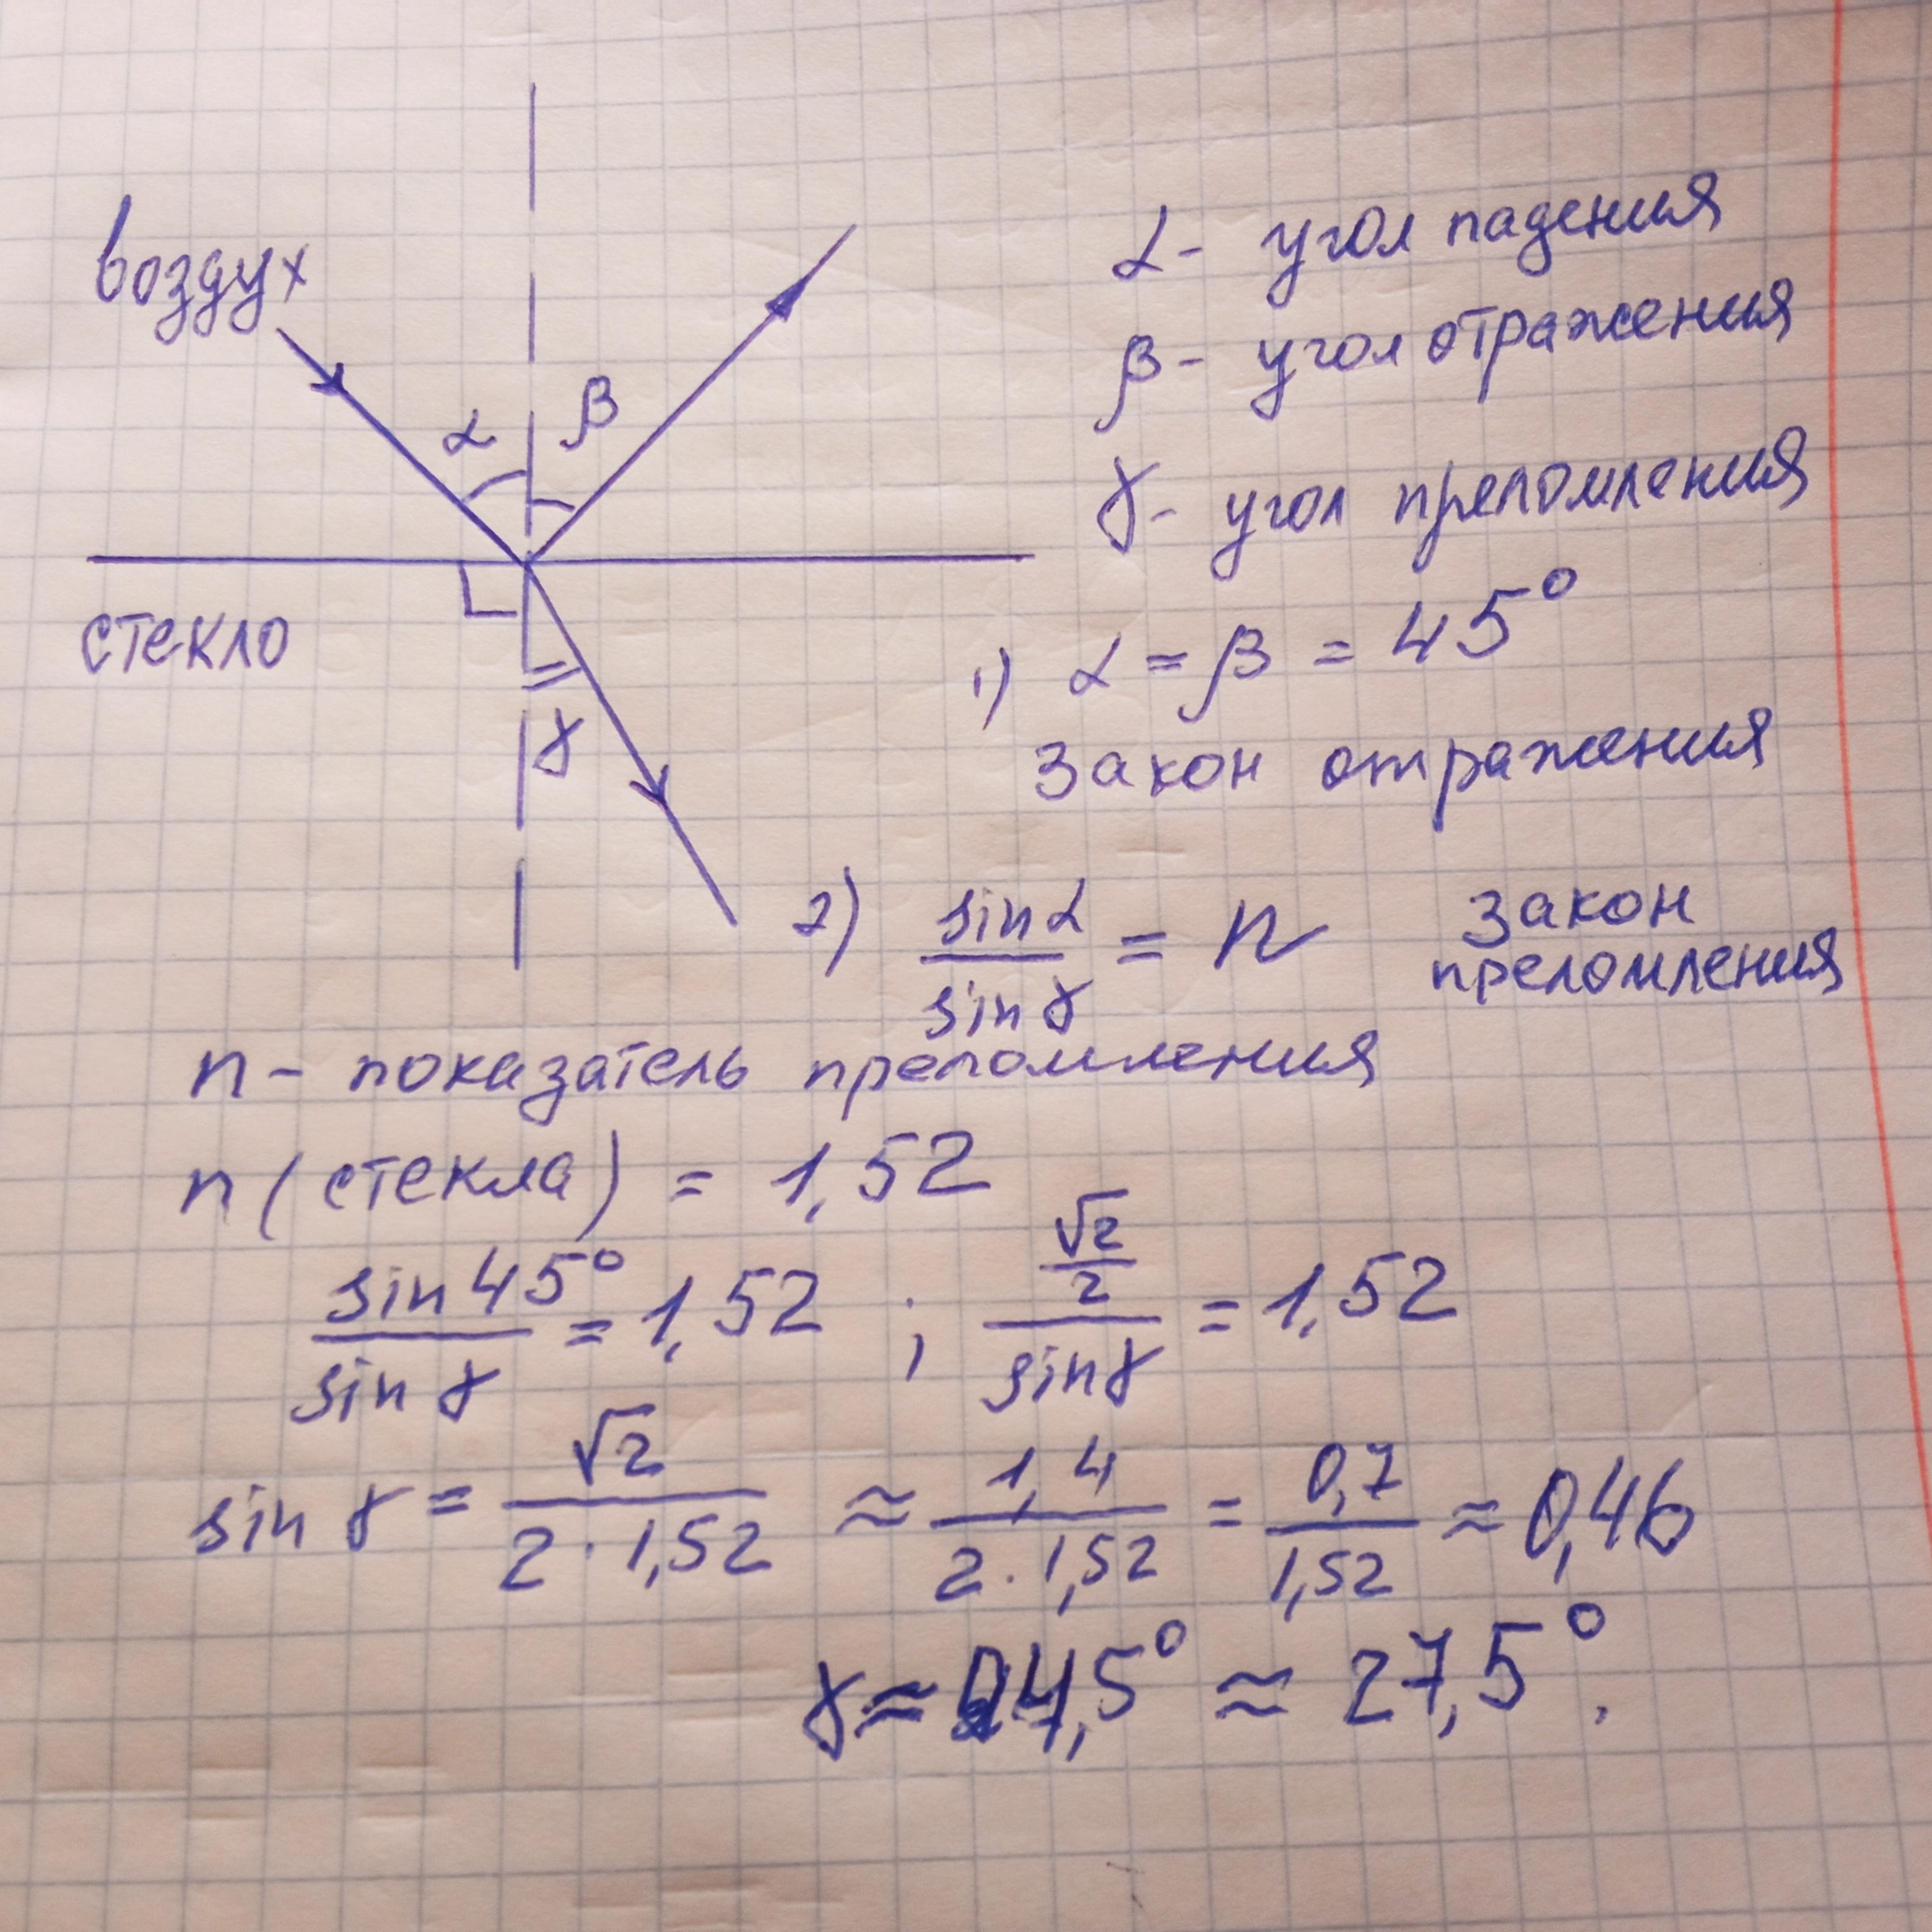 воздух
α β
стекло
γ
α - угол падения
β - угол отражения
γ - угол преломления
1) α = β = 45°
Закон отражения
2) sinα/sinγ = n Закон преломления
n - показатель преломления
n (стекла) = 1,52
sin45°/sinγ = 1,52 ; (√2/2)/sinγ = 1,52
sin γ = √2/(2 · 1,52) ≈ 1,4/(2 · 1,52) = 0,7/1,52 ≈ 0,46
γ ≈ 4,5° ≈ 27,5°.